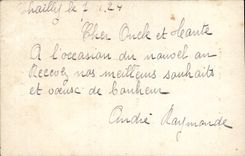 Chailly le 1.1.24
Cher Oncle et Tante
A l'occasion du nouvel an
Recevez nos meilleurs souhaits
et vœux de bonheur
André Raymonde